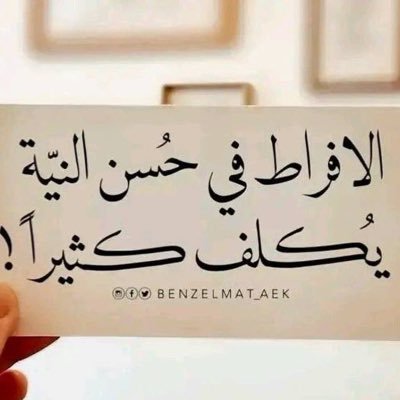 الافراط في حُسن النيّة
يُكلف كثيراً !
BENZELMAT_AEK